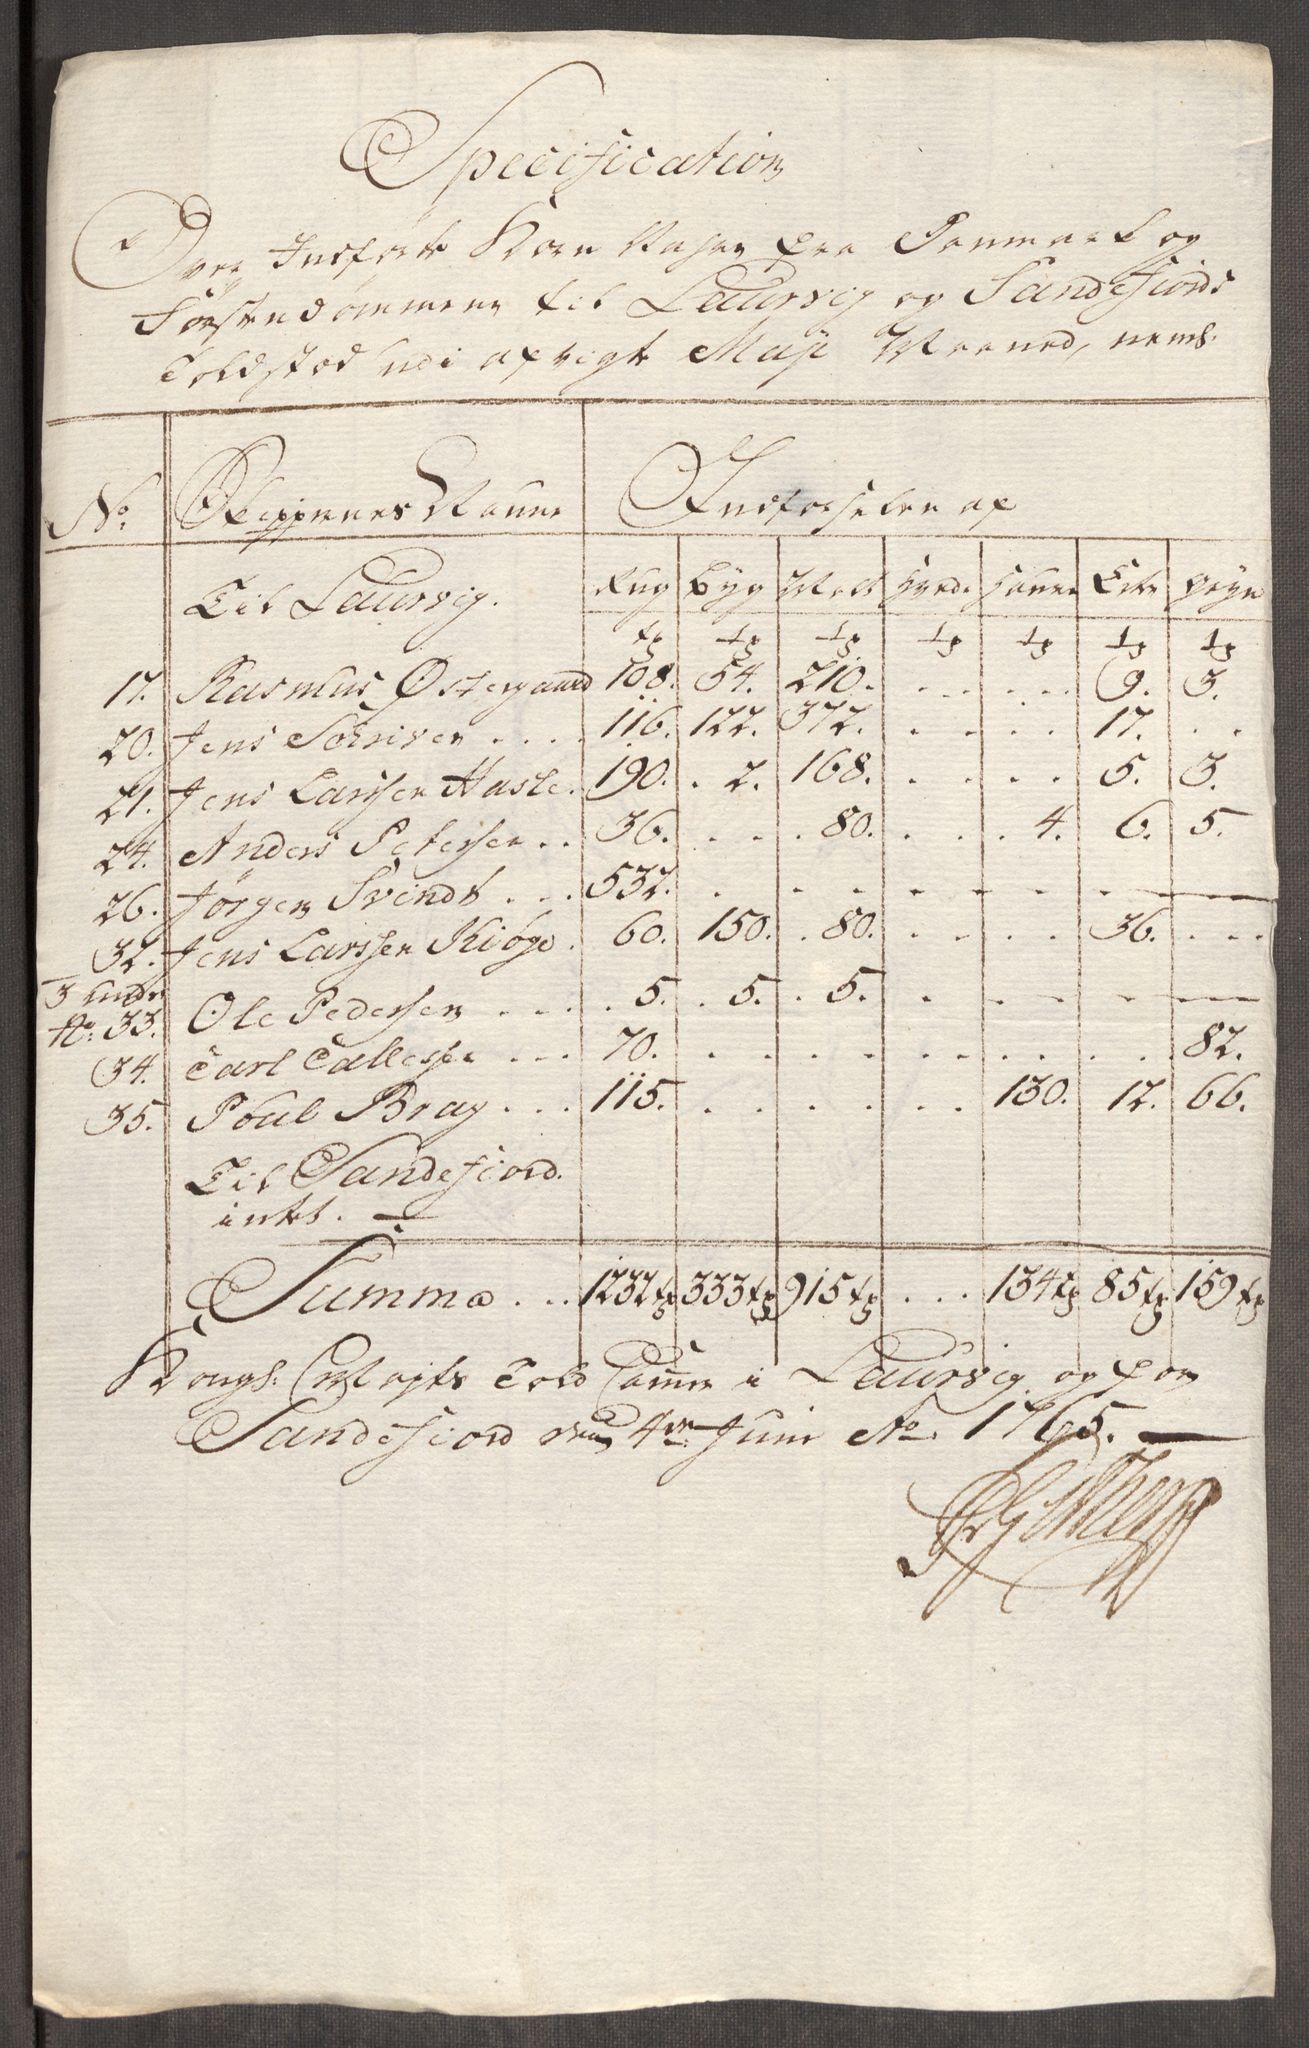 Specification
Over Indførte Korn Vahre fra Danmark og
Førstendømmene til Laurvig og Sandefiords
Toldsted udi afvigte Maji Maaned, neml:
No. Skippernes Navne Indførselen af
Til Laurvig. Rug Byg Malt Hvede Havre Erter Gryn
tr tr tr tr tr tr tr
17. Rasmus Østergaard 108. 54. 210. . . . . . 9. 3.
20. Jens Schriver . . . . 116. 122. 372. . . . . 17. . .
21. Jens Larssen Hasle. 190. . 2. 168. . . . . 5. 3.
24. Anders Petersen . . 36. . . . 80. . . . 4. 6. 5.
26. Jørgen Svindt . . . 532. . . . . . . . .
32. Jens Larssen Kiøge . 60. 150. . 80. . . . . . 36. . . .
3
No. 33. Ole Pedersen . . . . 5. . 5. . 5. . . . . .
34. Carl Callesen . . . 70. . . . . . . . . . . 82.
35. Poul Bray . . . 115. . . . . . . . 130. 12. 66.
Til Sandefiord.
intet. —
Summa . . . 1232 tr 333 tr 915 tr . . . 134 tr 85 tr 159 tr
Kongl: Mayts Told Cammer i Laurvig og for
Sandefiord den 4de Junii Ao. 1765. —